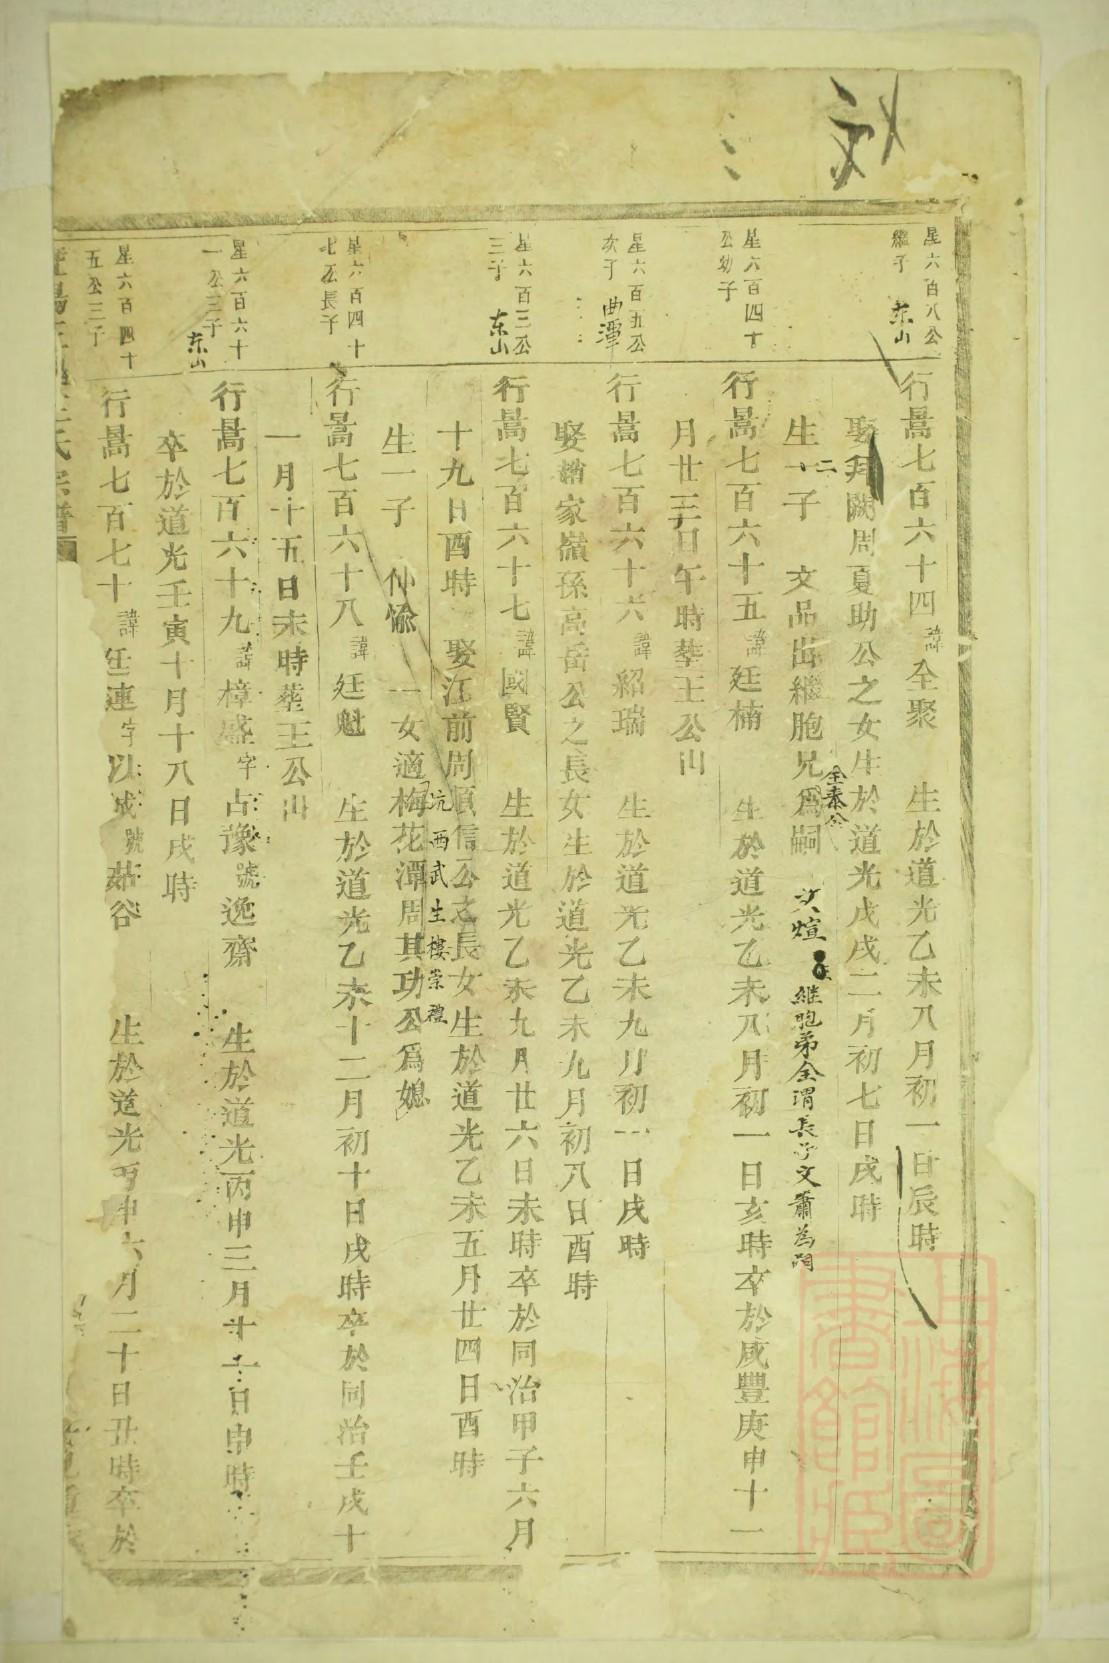 文
星六百八公
繼子
东山
行暠七百六十四諱全聚 生於道光乙未八月初一日辰時
娶拜閼周夏助公之女生於道光戊戌二月初七日戌時
生二子 文品出繼胞兄全泰公為嗣 文煊 継胞弟全渭長子文蕭為嗣
星六百四十
公幼子
行暠七百六十五諱廷楠 生於道光乙未八月初一日亥時卒於咸豐庚申十一
月廿三日午時葬王公山
星六百五公
次子
曲潭
行暠七百六十六諱紹瑞 生於道光乙未九月初一日戌時
娶檣家嶺孫高岳公之長女生於道光乙未九月初八日酉時
星六百三公
三子
东山
行暠七百六十七諱國賢 生於道光乙未九月廿六日未時卒於同治甲子六月
十九日酉時 娶江前周順信公之長女生於道光乙未五月廿四日酉時
生一子 仲愉 一女適梅花潭周其功公為媳
沆西武生樓崇禮
星六百四十
七公長子
行暠七百六十八諱廷魁 生於道光乙未十二月初十日戌時卒於同治壬戌十
一月十五日未時葬王公山
星六百六十
一公三子
东山
行暠七百六十九諱樟盛字占豫號逸齋 生於道光丙申三月廿一日申時
卒於道光壬寅十月十八日戌時
星六百四十
五公三子
行暠七百七十諱廷連字以成號菇谷 生於道光丙申六月二十日丑時卒於
氏宗譜